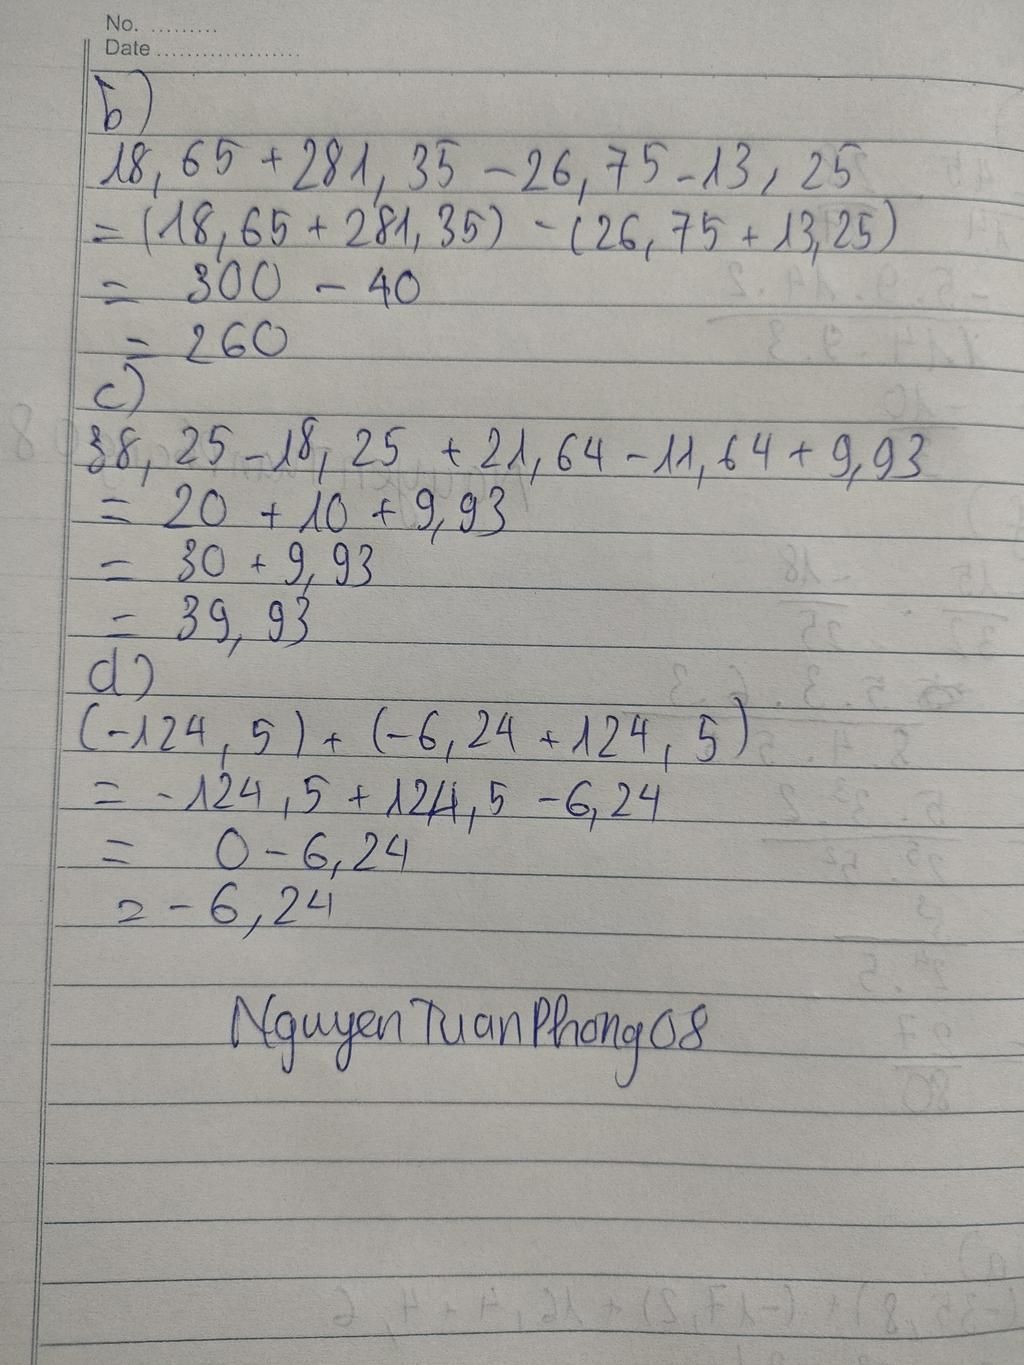 No. .........
Date ..................
b)
18,65 + 281,35 - 26,75 - 13,25
= (18,65 + 281,35) - (26,75 + 13,25)
= 300 - 40
= 260
c)
38,25 - 18,25 + 21,64 - 11,64 + 9,93
= 20 + 10 + 9,93
= 30 + 9,93
= 39,93
d)
(-124,5) + (-6,24 + 124,5)
= -124,5 + 124,5 - 6,24
= 0 - 6,24
= -6,24
NguyenTuanPhong08